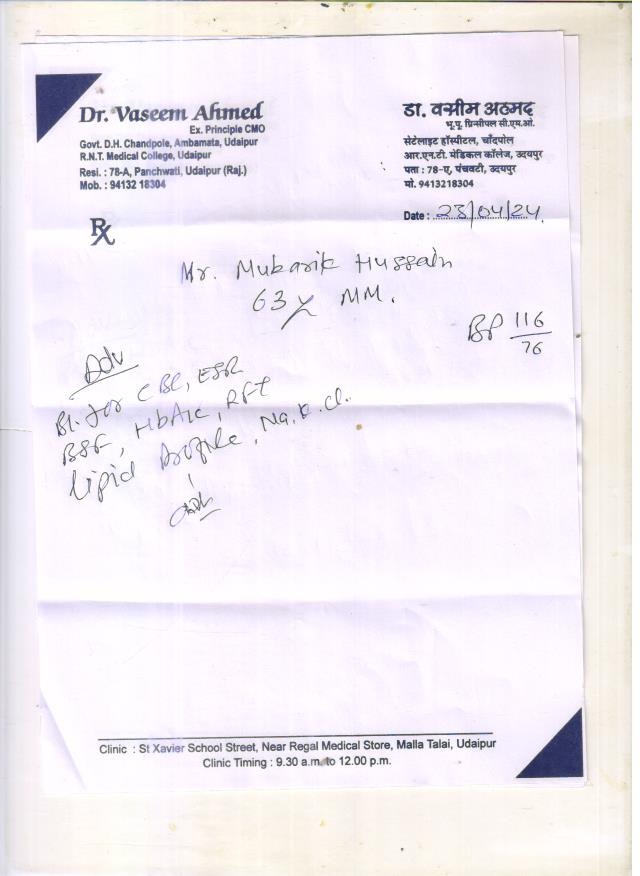 Dr. Vaseem Ahmed
Ex. Principle CMO
Govt. D.H. Chandpole, Ambamata, Udaipur
R.N.T. Medical College, Udaipur
Resi. : 78-A, Panchwati, Udaipur (Raj.)
Mob. : 94132 18304
डा. वसीम अहमद
भू.पू. प्रिन्सीपल सी.एम.ओ.
सेटेलाइट हॉस्पीटल, चाँदपोल
आर.एन.टी. मेडिकल कॉलेज, उदयपुर
पता : 78-ए, पंचवटी, उदयपुर
मो. 9413218304
Date : 23/04/24
Rx
Mr. Mubarik Hussain
63y MM.
BP 116/76
Adv
Bl. for CBC, ESR
BSF, HbA1c, RFT
Lipid Profile, Na. K. Cl.
Clinic : St Xavier School Street, Near Regal Medical Store, Malla Talai, Udaipur
Clinic Timing : 9.30 a.m. to 12.00 p.m.